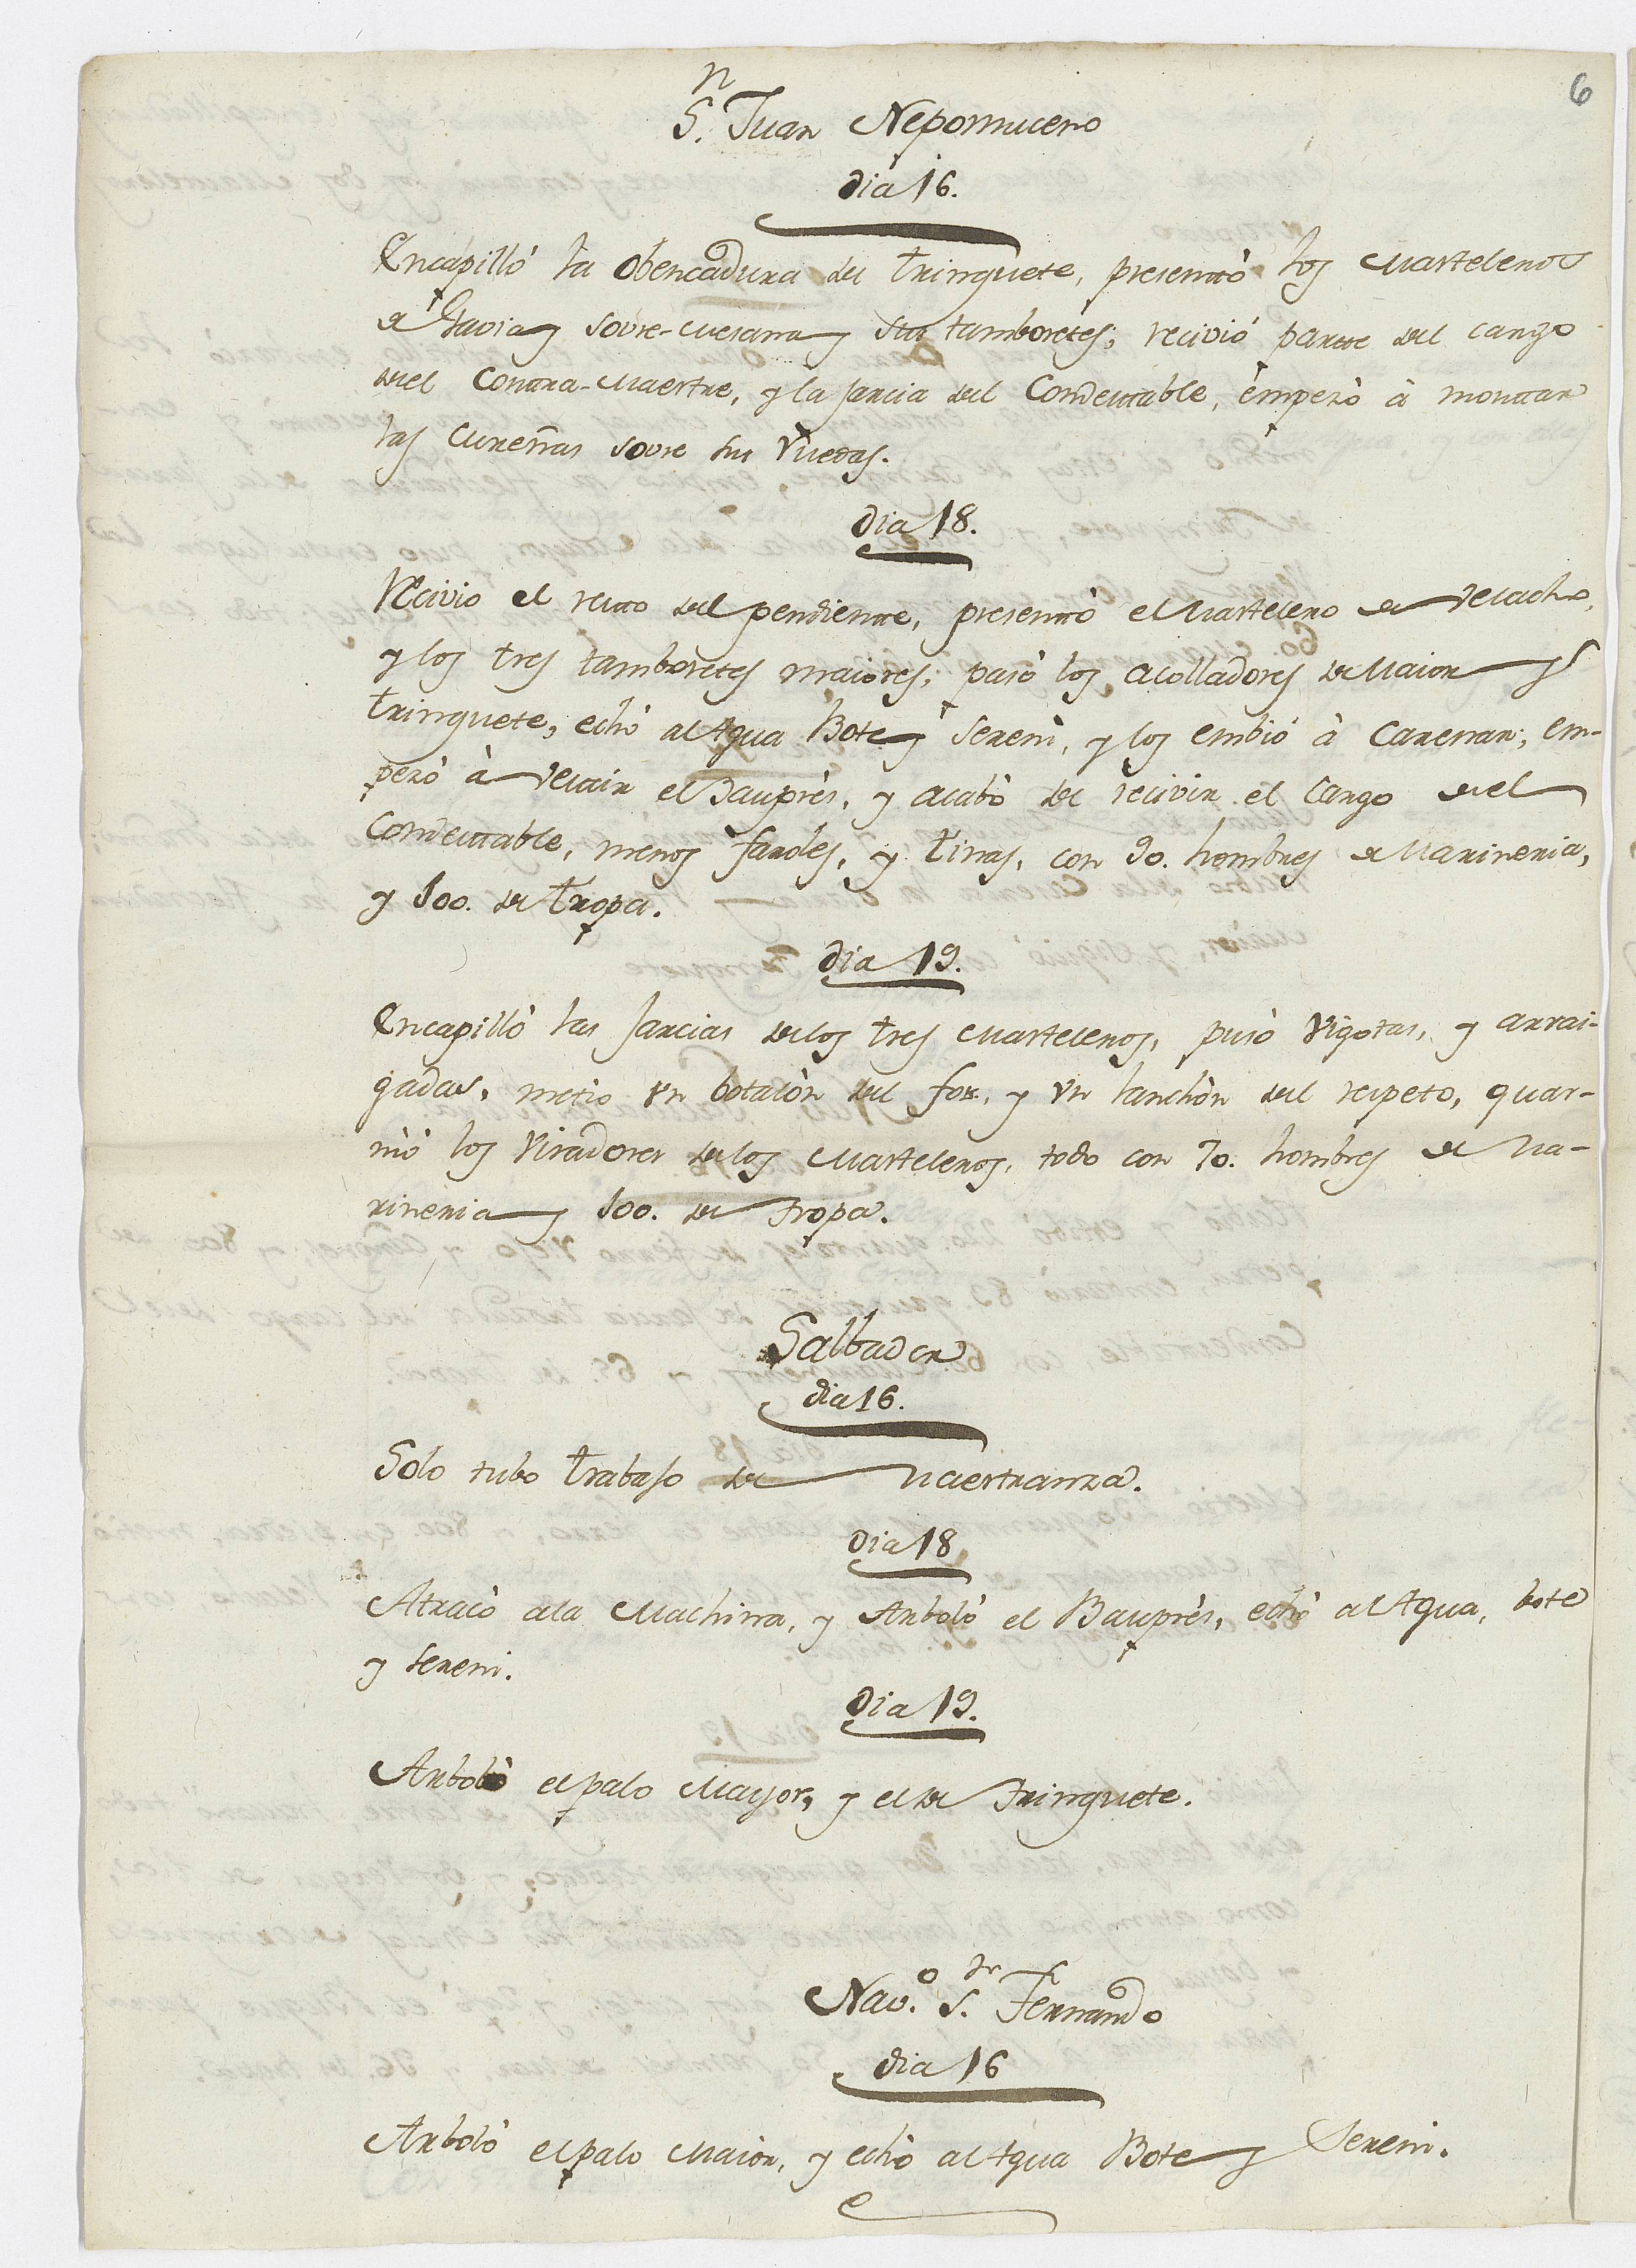 6
S.n Juan Nepomuceno
dia 16.
Encapilló la obencadura del trinquete, presentó los Masteleros
de Gavia y sobre-mesana y sus tamboretes; recivió parte del cargo
del Contra-Maestre, y la jarcia del Condestable, empezó à montar
las cureñas sobre sus ruedas.
dia 18.
Recivio el resto del pendiente, presentó el Mastelero de velacho,
y los tres tamboretes maiores; pasó los acolladores de Maior y
trinquete, echó al Agua Bote y Sereni, y los embió à Carenar; em-
pezó à recair el Bauprès, y acabò de recivir el Cargo del
Condestable, menos faroles, y tinas, con 90. hombres de Marineria,
y 100. de tropa.
dia 19.
Encapilló las Jarcias de los tres Masteleros, pusó Vigotas, y arrai-
gadas, metio Vn botalòn del fox, y Vn lanchòn del respeto, guar-
nió los Viradores de los Masteleros, todo con 70. hombres de Ma-
rineria y 100. de Tropa.
Salbador
dia 16.
Solo tubo trabajo de Maestranza.
Dia 18
Atracò ala Machina, y Arboló el Bauprès, echò al Agua, bote
y sereni.
Dia 19.
Arboló el palo Mayor, y el de Trinquete.
Nav.o S.n Fernando
dia 16
Arboló el palo Maior, y echò al Agua Bote y Sereni.